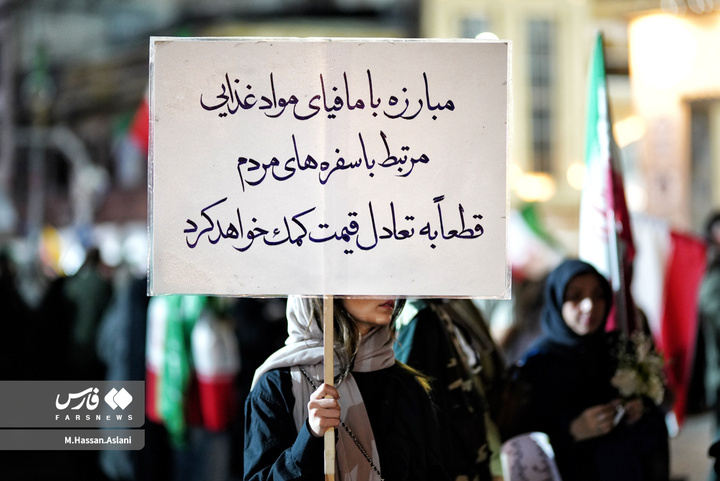 مبارزه با مافیای مواد غذایی
مرتبط با سفره های مردم
قطعاً به تعادل قیمت کمک خواهد کرد
فارس
FARSNEWS
M.Hassan.Aslani